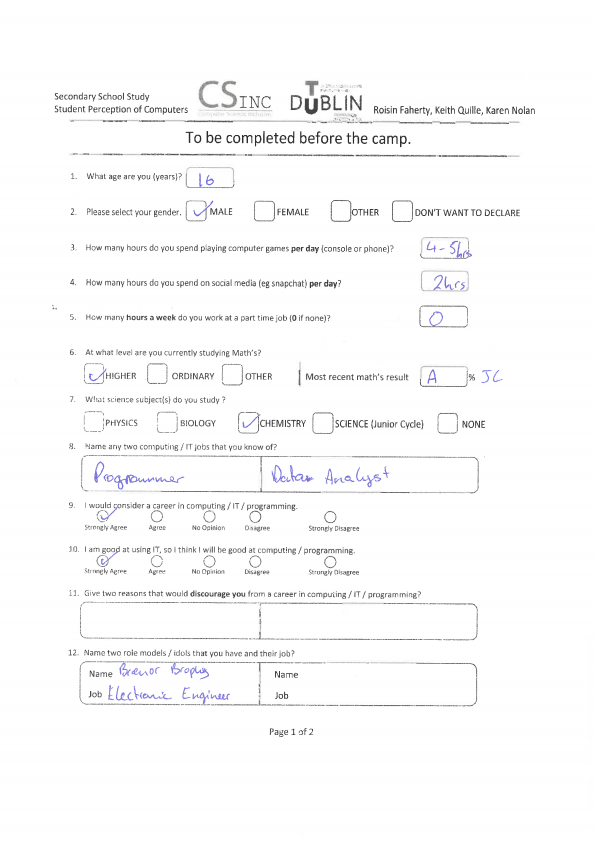 Secondary School Study
Student Perception of Computers
CSINC
TU DUBLIN
Roisin Faherty, Keith Quille, Karen Nolan
To be completed before the camp.
1. What age are you (years)? 16
2. Please select your gender. MALE FEMALE OTHER DON'T WANT TO DECLARE
3. How many hours do you spend playing computer games per day (console or phone)? 4-5hrs
4. How many hours do you spend on social media (eg snapchat) per day? 2hrs
5. How many hours a week do you work at a part time job (0 if none)? 0
6. At what level are you currently studying Math's?
HIGHER ORDINARY OTHER Most recent math's result A % JC
7. What science subject(s) do you study ?
PHYSICS BIOLOGY CHEMISTRY SCIENCE (Junior Cycle) NONE
8. Name any two computing / IT jobs that you know of?
Programmer Data Analyst
9. I would consider a career in computing / IT / programming.
Strongly Agree Agree No Opinion Disagree Strongly Disagree
10. I am good at using IT, so I think I will be good at computing / programming.
Strongly Agree Agree No Opinion Disagree Strongly Disagree
11. Give two reasons that would discourage you from a career in computing / IT / programming?
12. Name two role models / idols that you have and their job?
Name Brophy Name
Job Electronic Engineer Job
Page 1 of 2